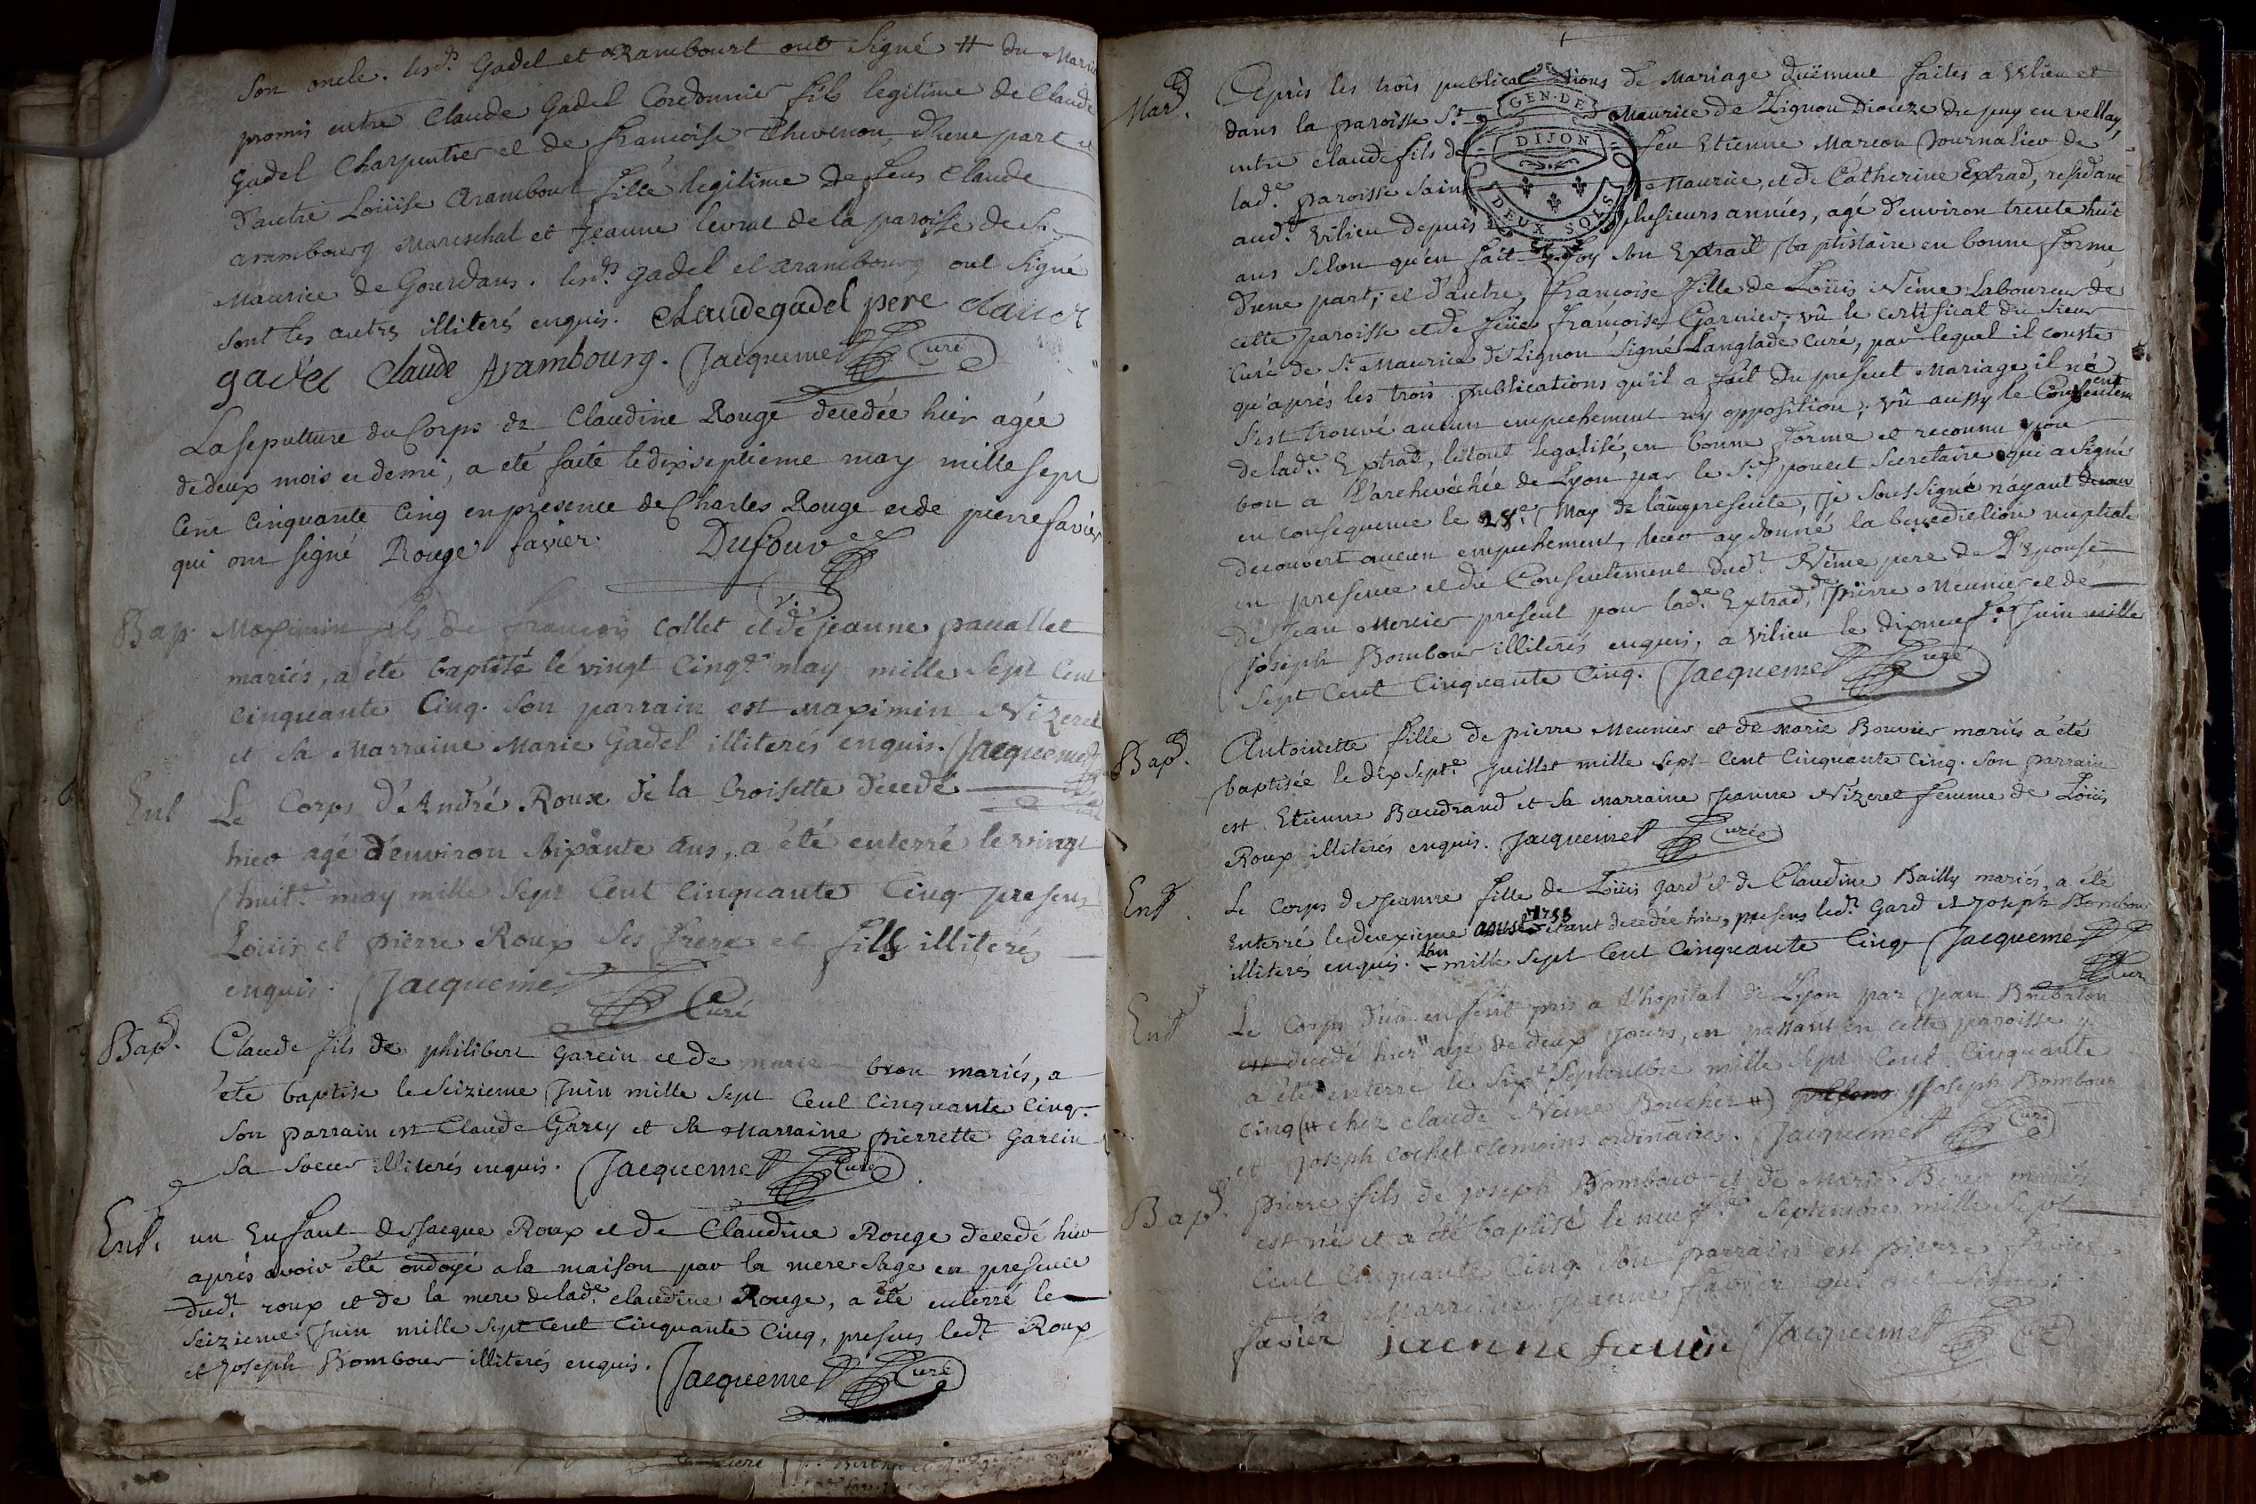 Son oncle. lesd.ts Gadel et Arambourt ont Signé # du Maria
promis entre Claude Gadel Cordonnier fils legitime de Claude
Gadel Charpentier et de francoise Thevenon, d'une part et
d'autre Loüise Arambourt fille legitime de feus Claude
arambourg Mareschal et Jeanne levrat de la paroisse de St
Maurice de Gourdans. lesd.ts gadel et arambourg ont signé
sont les autres illiterés enquis. claude gadel pere claude
gadel Claude Arambourg. Jacquemet Curé
La sepulture du Corps de Claudine Rouge decedée hier agée
de deux mois et demi, a été faite le dix septieme may mille sept
Cent Cinquante Cinq en presence de Charles Rouge et de pierre favier
qui ont signé Rouge favier Dufour
vic.
Bap. Maximin fils de francois Collet et de jeanne pacallet
mariés, a été baptisé le vingt Cinq.e may mille Sept Cent
Cinquante Cinq. Son parrain est Maximin Nizeret
et Sa Marraine Marie Gadel illiterés enquis. Jacquemet
Ent Le Corps d'André Roux de la Croisette decedé
hier agé d'environ Soixante Ans, a été enterré le vingt
huit.e may mille Sept Cent Cinquante Cinq presens
Loüis et pierre Roux Ses frere et fils illiterés
enquis. Jacquemet Curé
Bap. Claude fils de philibert Garcin et de marie bron mariés, a
été baptisé le Seizieme Juin mille Sept Cent Cinquante Cinq.
Son parrain est Claude Garcy et Sa Marraine pierrette Garcin
Sa Soeur illiterés enquis. Jacquemet Curé
Ent. un Enfant de Jacque Roux et de Claudine Rouge decedé hier
après avoir été ondoyé a la maison par la mere Sage en presence
dud.t roux et de la mere de lad.e claudine Rouge, a été enterré le
Seizieme Juin mille Sept Cent Cinquante Cinq, presens led.t Roux
et Joseph Bombour illiterés enquis. Jacquemet Curé
Mar. Après les trois publications de Mariage düement faites a Vilieu et
dans la paroisse St Maurice de Lignon Dioceze du puy en vellay,
entre claude fils de feu Etienne Marcon Journalier de
lad.e paroisse Saint Maurice, et de Catherine Extrad, residant
aud.t Vilieu depuis plusieurs années, agé d'environ trente huit
ans Selon qu'en fait foy Son Extrait baptistaire en bonne forme,
d'une part; et d'autre, françoise fille de Loüis Néme Laboureur de
cette paroisse et de feüe françoise Garnier; vû le certificat du Sieur
Curé de St Maurice de Lignon Signé Langlade Curé, par lequel il conste
qu'après les trois publications qu'il a fait du present Mariage il ne
s'est trouvé aucun empechement ny opposition; vû aussy le Consentement
de lad.e Extrad, le tout legalisé, en bonne forme et reconnu pour
bon a l'archevêchée de Lyon par le Sr. poucet Secretaire qui a Signé
en consequence le 28.e May de l'année presente, je Soussigné n'ayant
decouvert aucun empechement, leur ay donné la benediction nuptiale
en presence et du Consentement dud.t Néme pere de l'Epouse,
de Jean Mercier present pour lad.e Extrad, de pierre Meunier et de
Joseph Bombour illiterés enquis, a Vilieu le dixneuf.e Juin mille
Sept Cent Cinquante Cinq. Jacquemet Curé
GEN. DE
DIJON
DEUX SOLS
Bap. Antoinette fille de pierre Meunier et de Marie Bouvier mariés a été
baptisée le dix Sept.e Juillet mille Sept Cent Cinquante Cinq. Son parrain
est Etienne Baudrand et Sa Marraine Jeanne Nizeret femme de Loüis
Roux illiterés enquis. Jacquemet Curé
Ent. Le Corps de Jeanne fille de Loüis Gard et de Claudine Bailly mariés, a été
Enterré le deuxieme 1755 étant decedée hier, presens led.t Gard et Joseph Bombour
illiterés enquis. l'an mille Sept Cent Cinquante Cinq Jacquemet Curé
Ent Le Corps d'un enfant pris a l'hopital de Lyon par Jean
est decedé hier # agé de deux jours, en passant en cette paroisse y
a été enterré le Six.e Septembre mille Sept Cent Cinquante
Cinq (# chez claude Néme Boucher #) Joseph Bombour
et Joseph Cochet temoins ordinaires. Jacquemet Curé
Bap. Pierre fils de Joseph Bombour et de Marie mariés
est né et a été baptisé le neuf.e Septembre mille Sept
Cent Cinquante Cinq. Son parrain est pierre favier
et Sa Marraine Jeanne favier qui ont Signé.
favier jeanne favier Jacquemet Curé